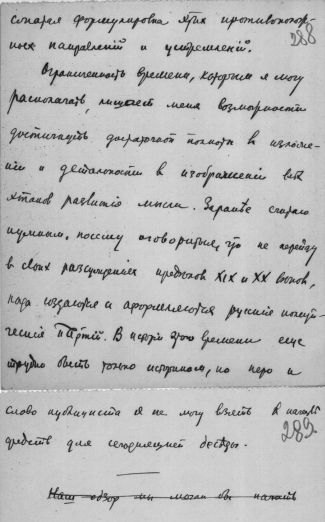 сжатая формулировка этих противополож-
ных направленій и устремленій.
288
Ограниченность времени, которым я могу
располагать, лишает меня возможности
достигнуть достаточной полноты в изложе-
ніи и детальности в изображеніи всѣх
этапов развитія мысли. Заранѣе считаю
нужным, посему оговориться, что не перейду
в своих разсужденіях предѣлов XIX и XX вѣков,
когда создаются и оформляются русскія полити-
ческія партіи. В исторіи этого времени еще
трудно быть только историком, но перо и
слово публициста я не могу взять в качествѣ
289
средств для сегодняшней бесѣды.
Наш обзор мы могли бы начать